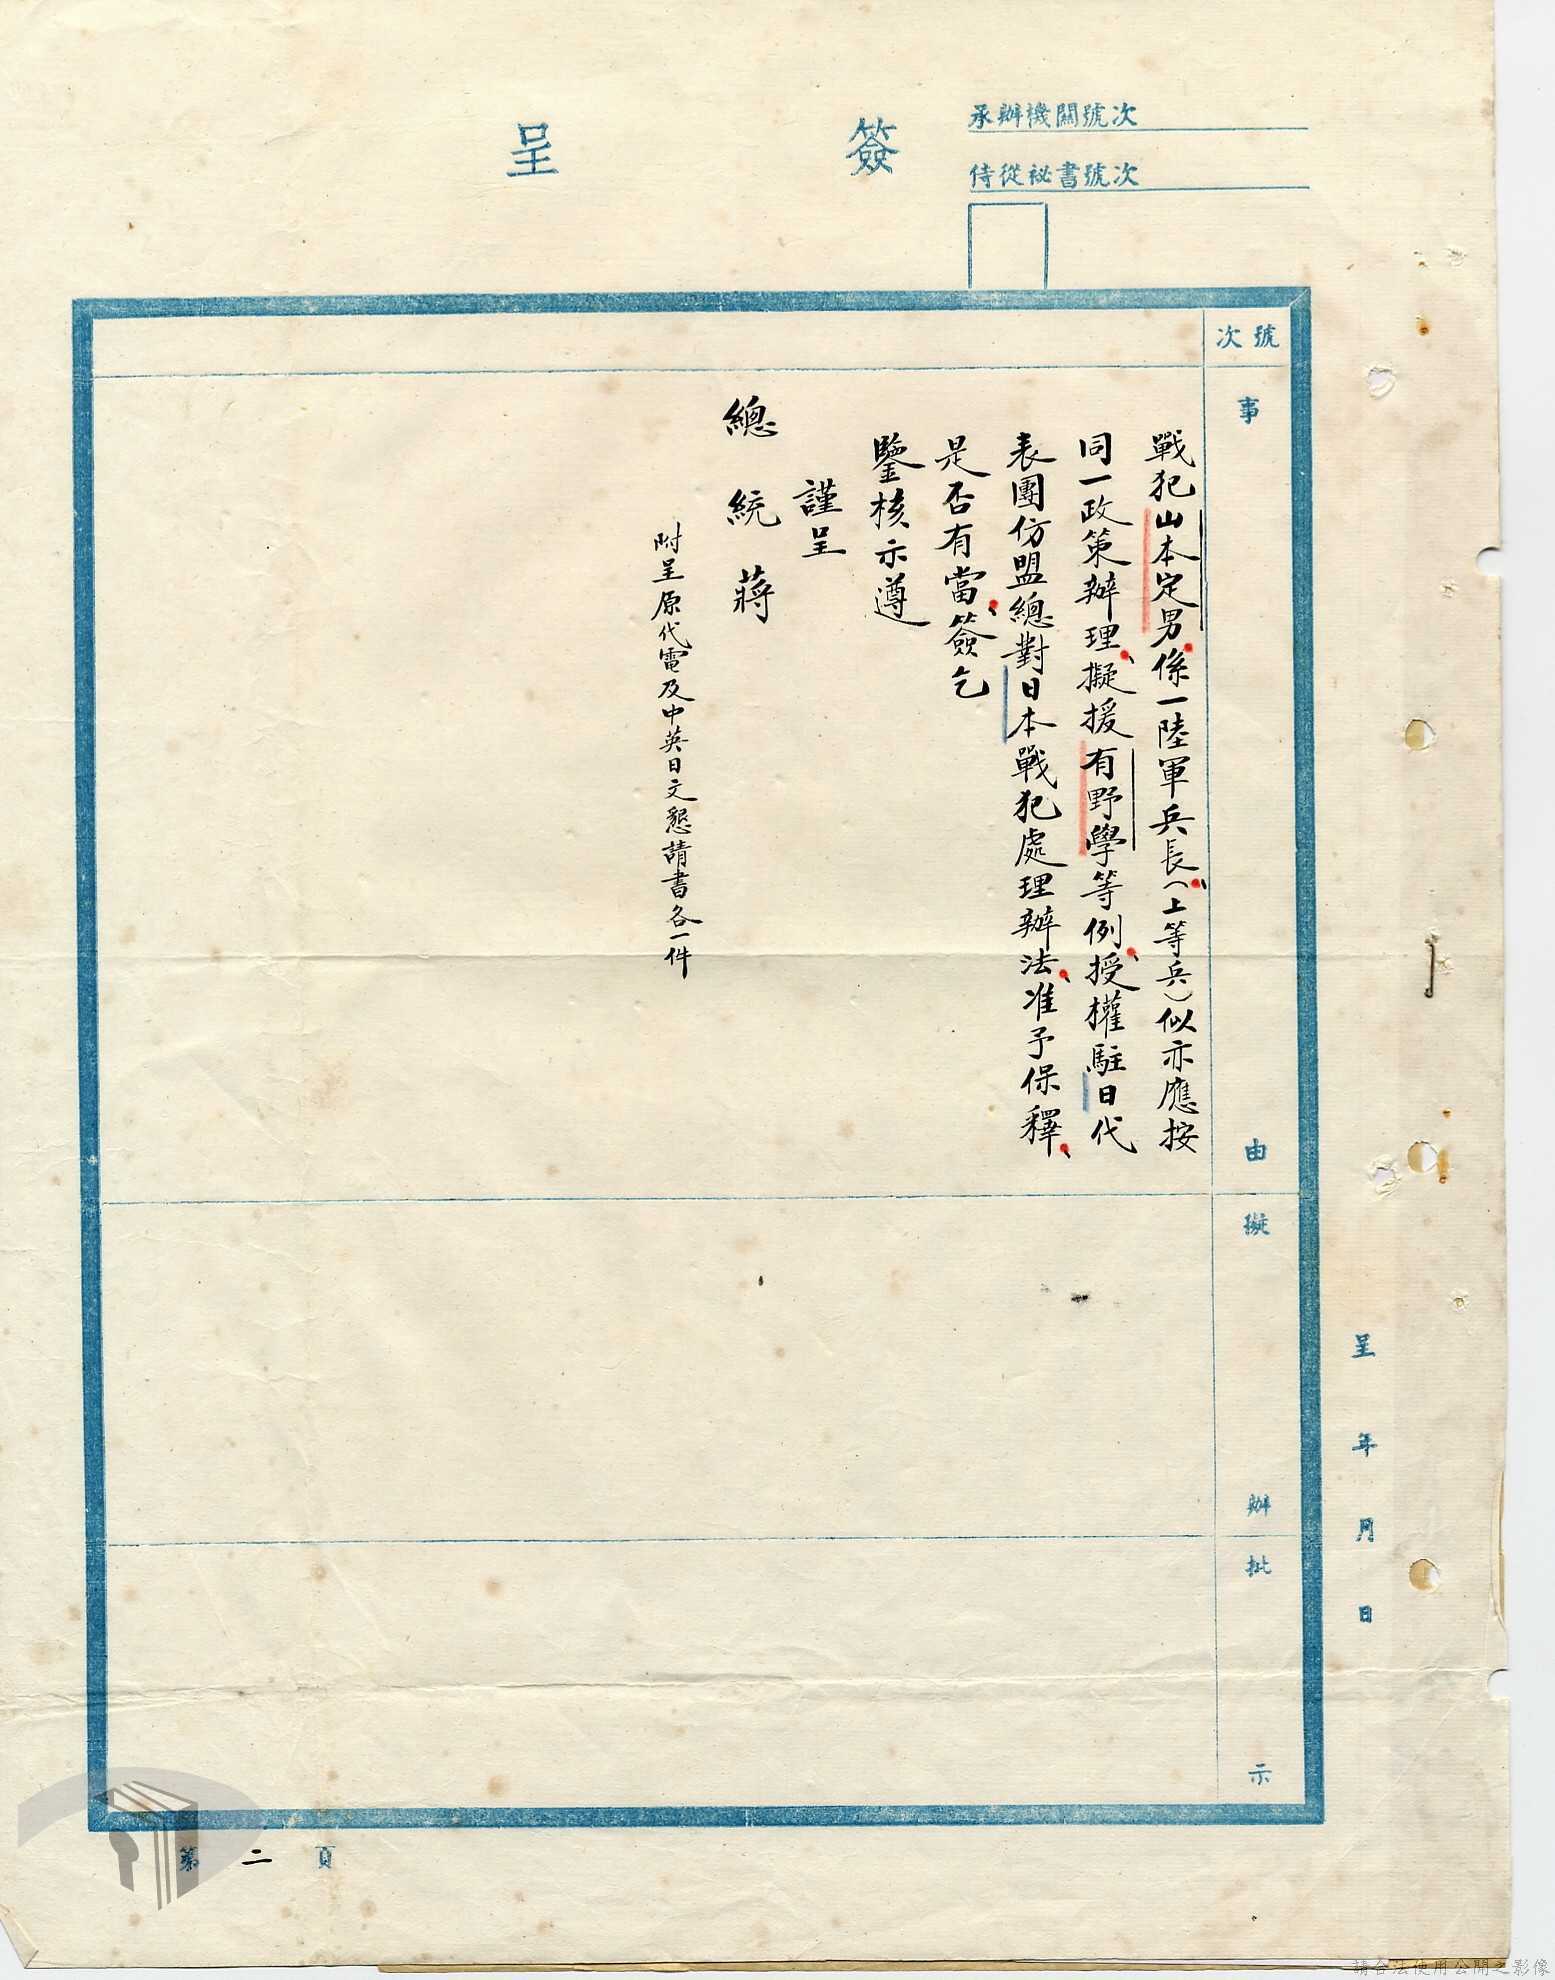 簽呈
承辦機關號次
侍從祕書號次
號次
事由
擬辦
批示
戰犯山本定男係一陸軍兵長、（上等兵）似亦應按
同一政策辦理、擬援有野學等例、授權駐日代
表團仿盟總對日本戰犯處理辦法、准予保釋、
是否有當、簽乞
鑒核示遵
謹呈
總統蔣
附呈原代電及中英日文懇請書各一件
呈年月日
第二頁
請合法使用公開之影像